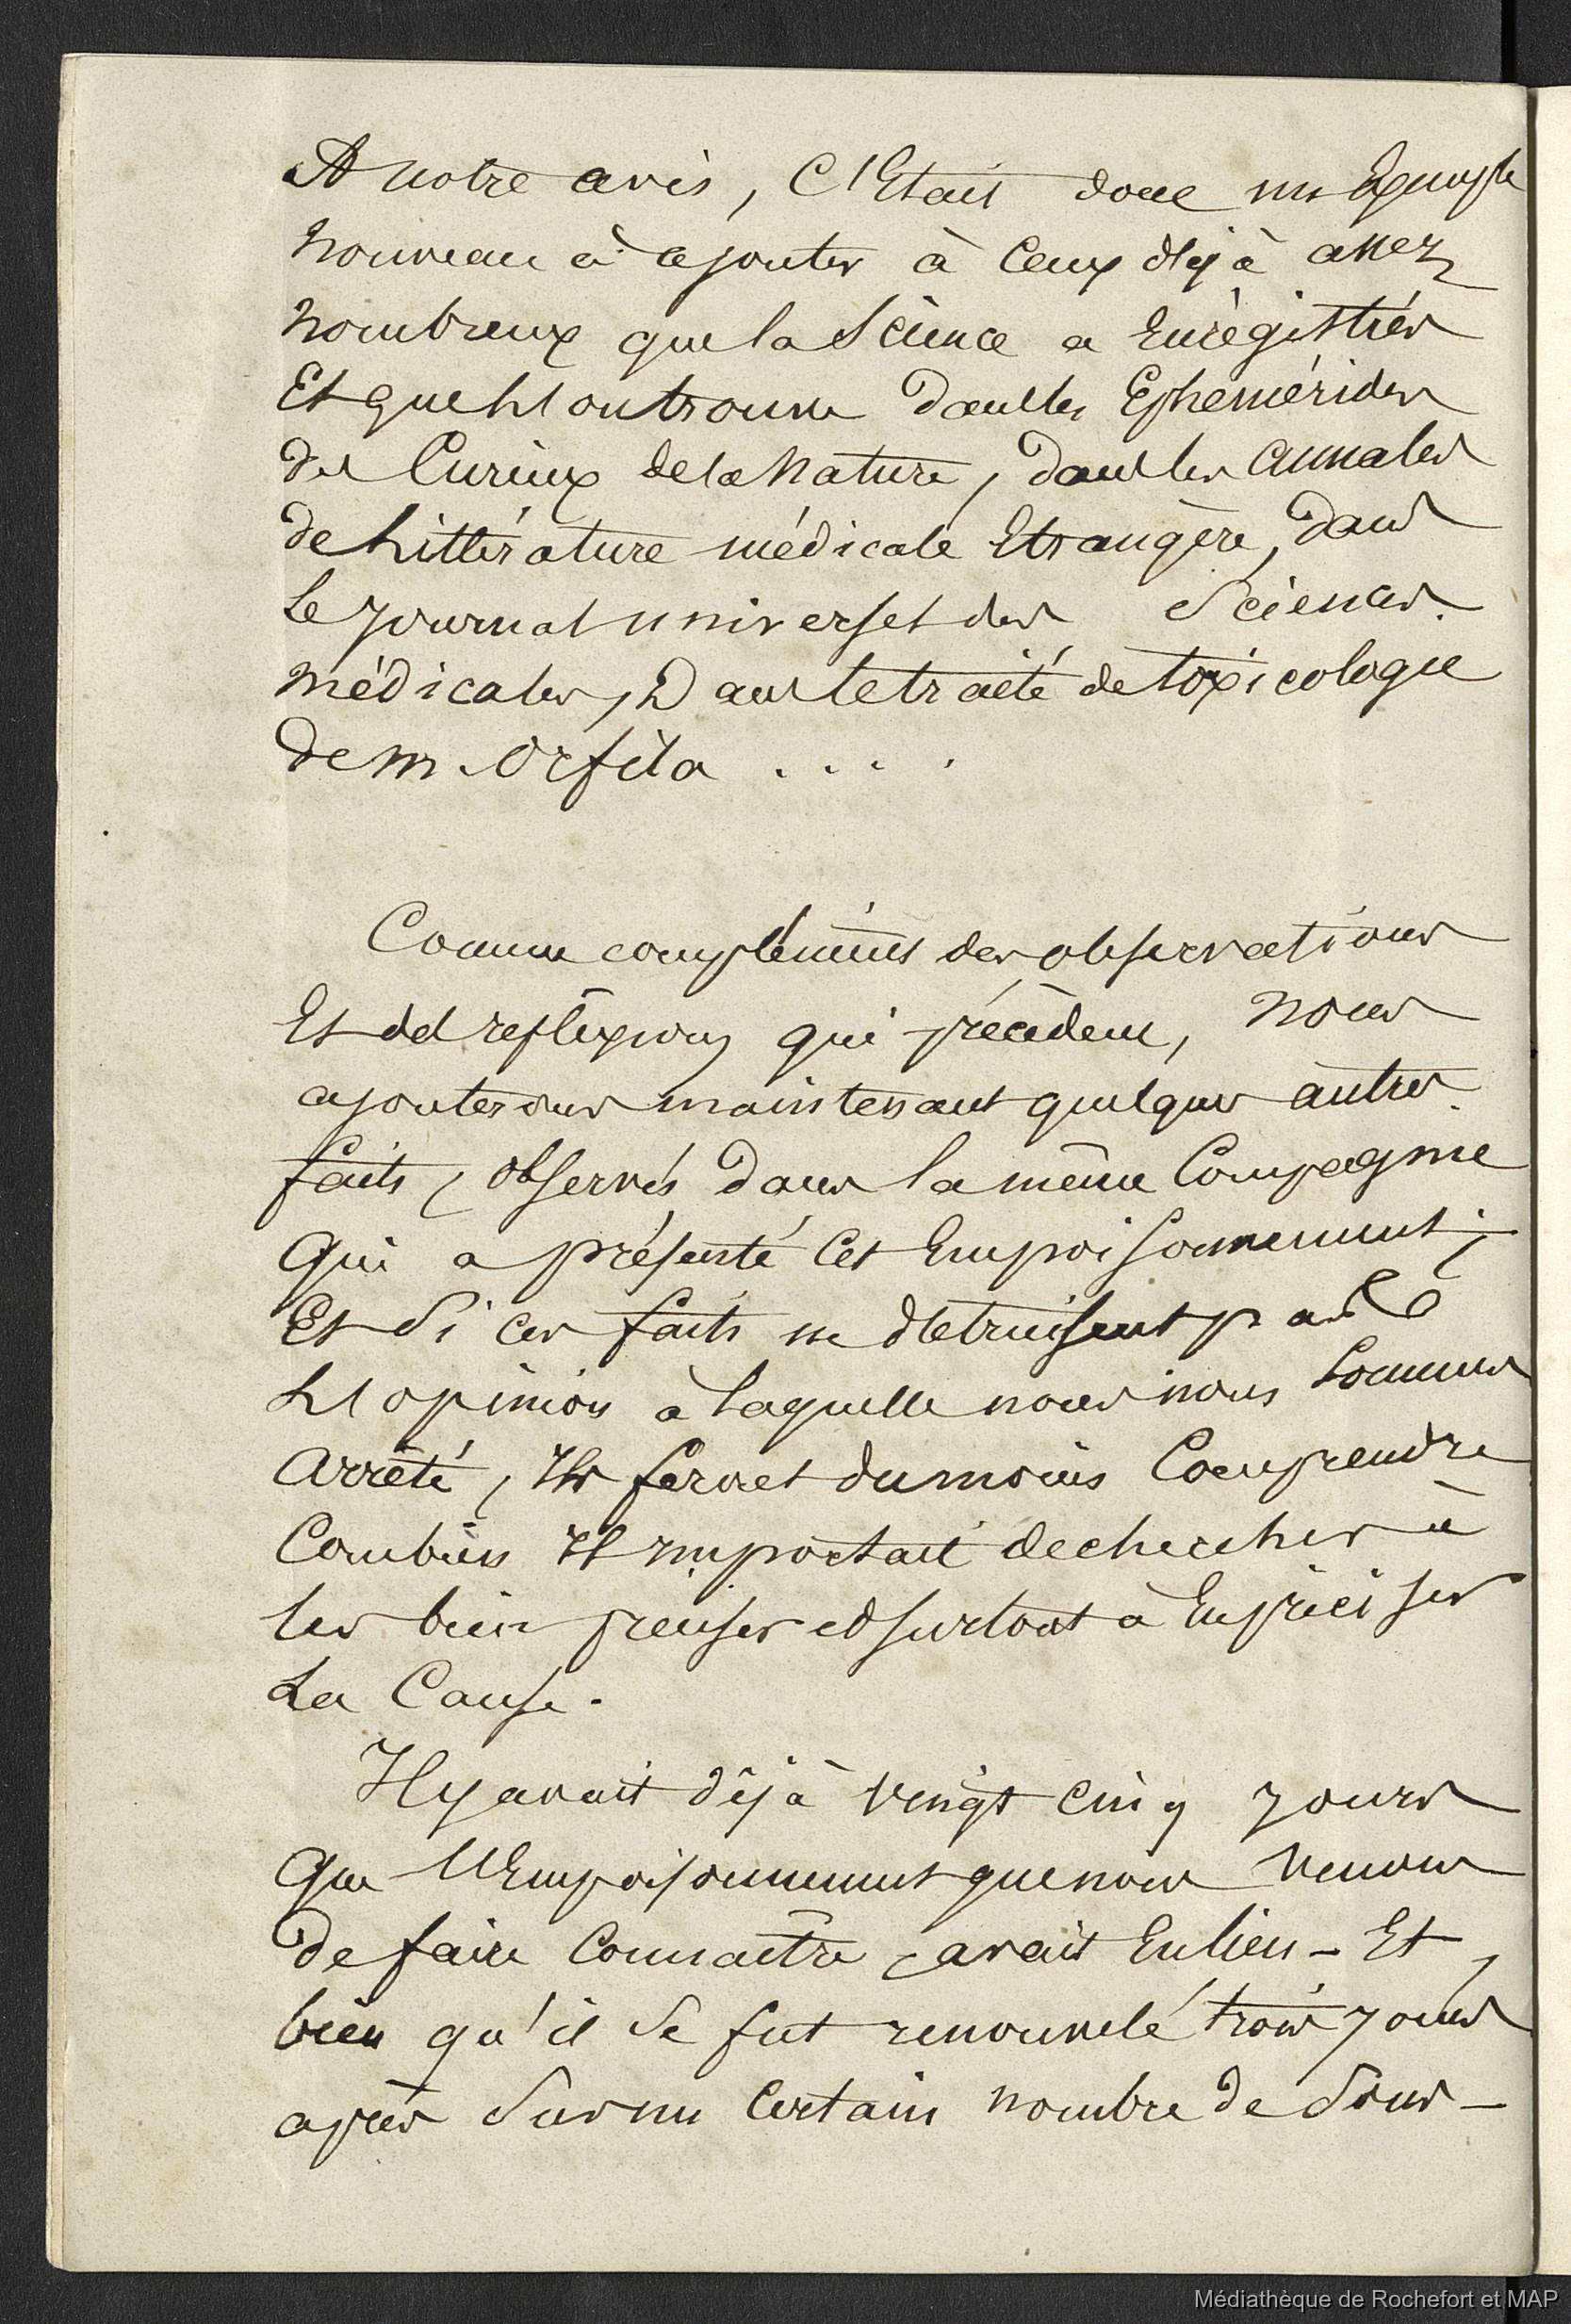 A notre avis, C'Etait donc un Exemple
nouveau à ajouter à ceux déjà assez
nombreux que la Science a Enrégistrés
Et que l'on trouve dans les Ephemérides
des Curieux de la Nature, dans les annales
de Littérature médicale Etrangère, dans
le Journal universel des Sciences
médicales, Dans le traité de toxicologie
de m. Orfila . . . .
Comme compléments des observations
Et des reflexions qui précèdent, nous
ajouterons maintenant quelques autres
faits, observés dans la même Compagnie
qui a présenté cet Empoisonnement;
Et Si ces faits ne détruisent pas
L'opinion à laquelle nous nous sommes
arrêté, Ils feront du moins Comprendre
Combien Il Importait de chercher à
les bien préciser et surtout à En préciser
La Cause.
Il y avait déjà vingt cinq jours
que l'Empoisonnement que nous venons
de faire Connaître, avait Eu lieu - Et,
bien qu'il se fut renouvelé trois jours
après Sur un Certain nombre de Sous-
Médiathèque de Rochefort et MAP